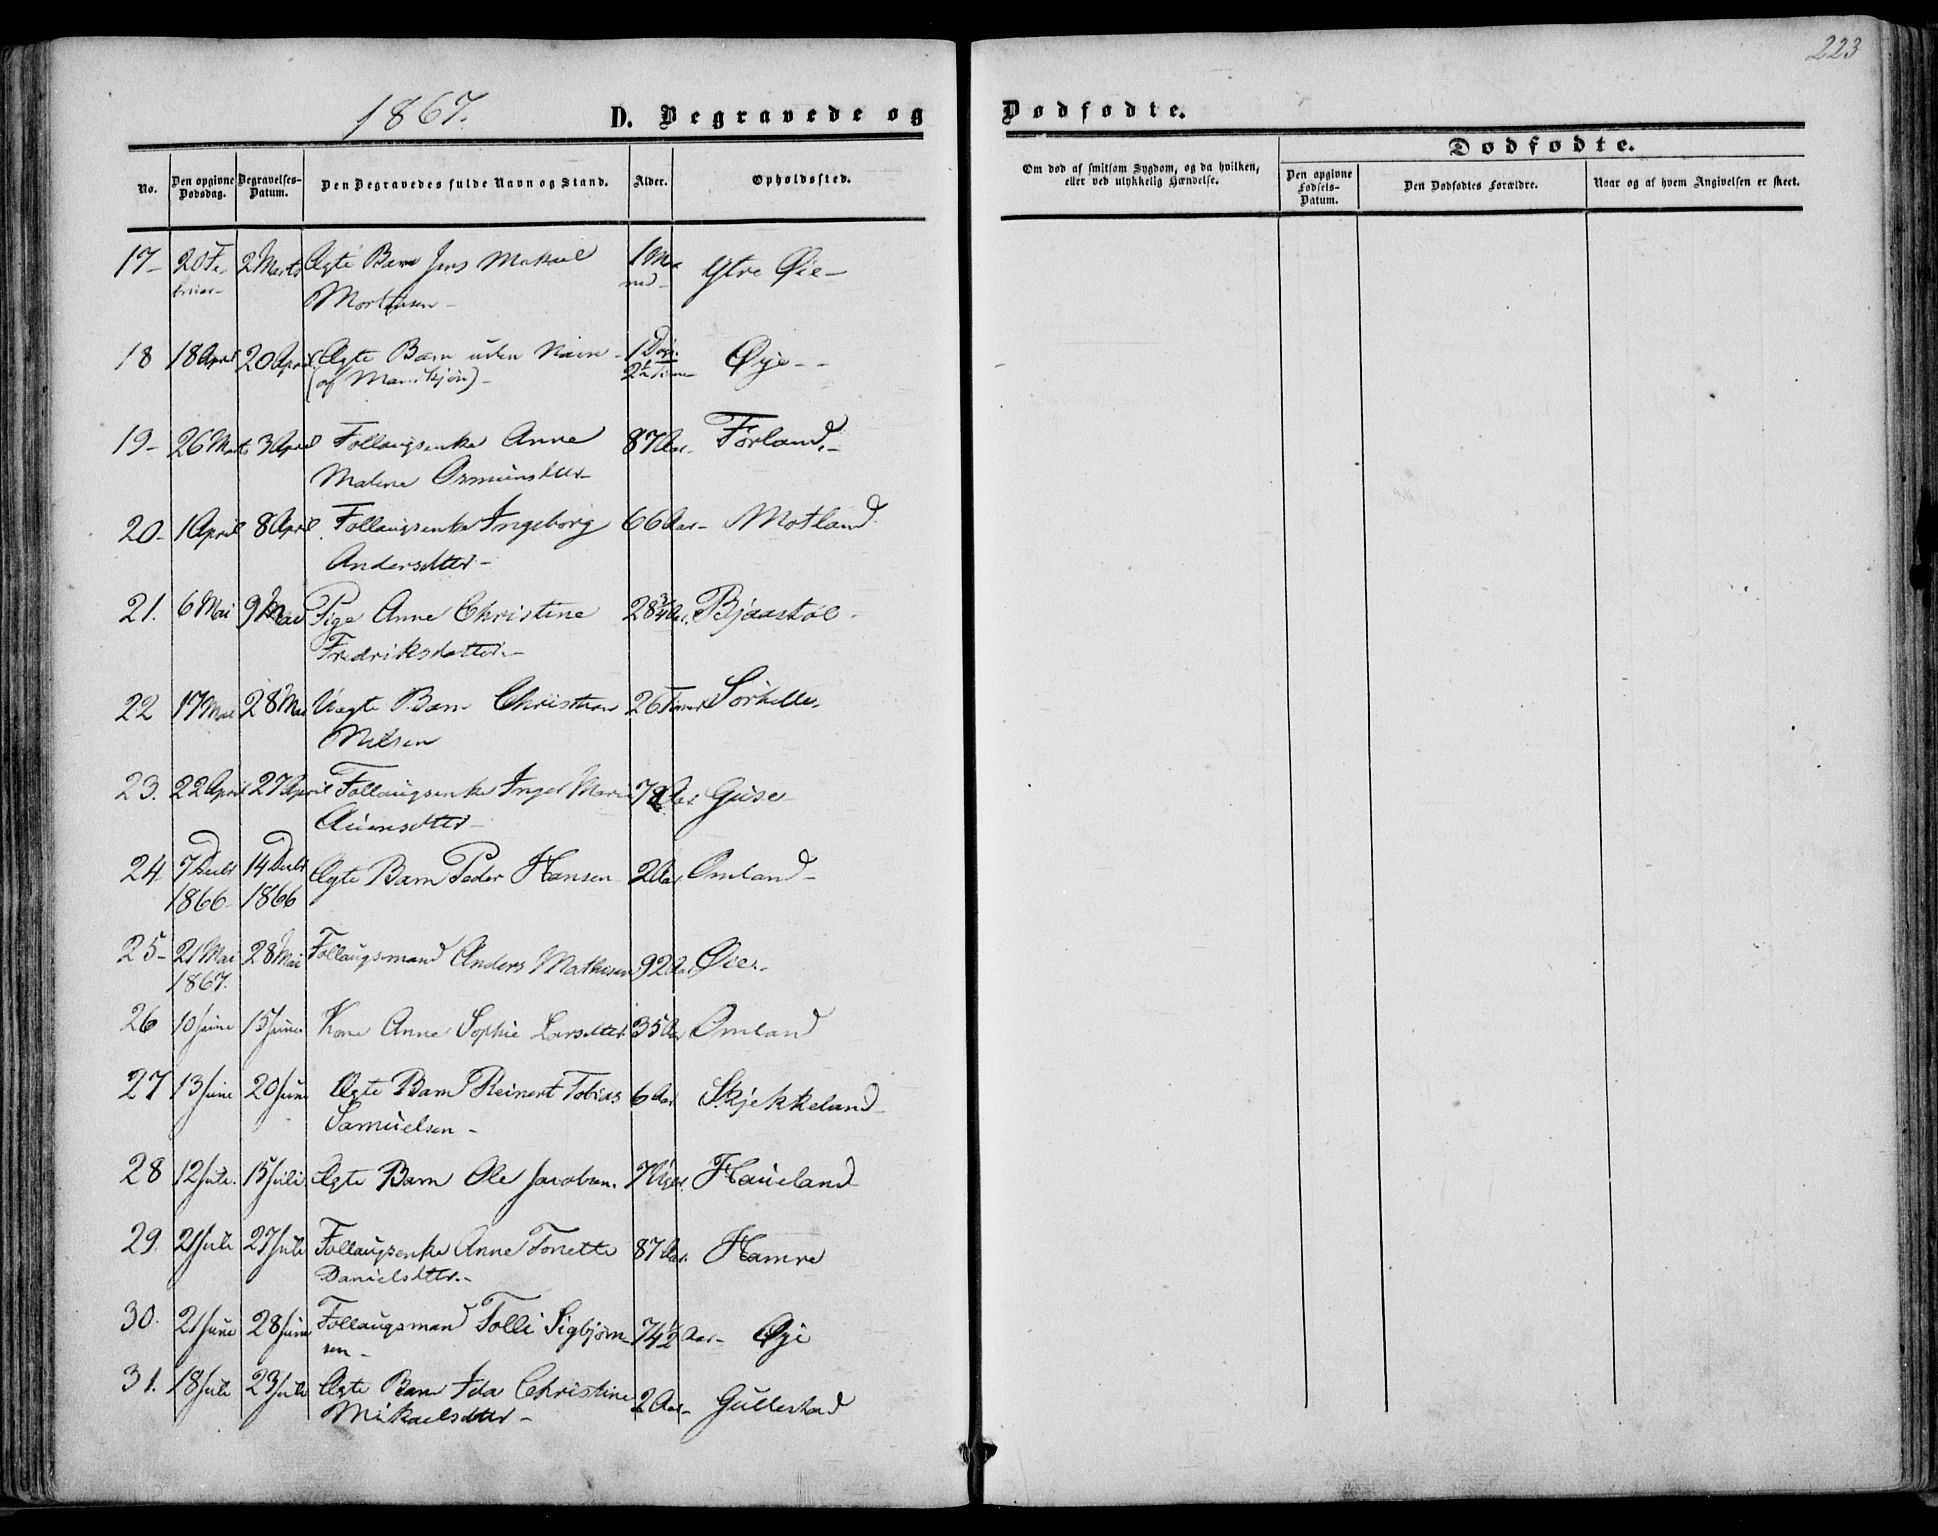 223
1867. D. Begravede og Dødfødte.
No. Den opgivne Dødsdag. Begravelses-Datum. Den Begravedes fulde Navn og Stand. Alder. Opholdssted.
Om død af smitsom Sygdom, og da hvilken, eller ved ulykkelig Hændelse.
Dødfødte.
Den opgivne Fødsels-Datum. Den Dødfødtes Forældre. Naar og af hvem Angivelsen er skeet.
17- 20 Fe- 2 Marts Ægte Barn Jens Mikael 1 Maa Ytre Øie-
bruar- Mortensen- ned-
18 18 April 20 April Ægte Barn uden Navn- 1 Døgn Øye--
(af Mandkjøn)- 2½ Time-
19- 26 Marts 3 April Follaugsenke Anne 87 Aar- Førland.-
Malene Osmunsdtter-
20- 1 April 8 April Follaugsenke Ingeborg 66 Aar- Motland
Andersdtter-
21. 6 Mai 9 Mai Pige Anne Christine 28¾ Aar. Bjaastøl-
Fredriksdatter.-
22 17 Mai 28 Mai Uægte Barn Christian 26 Timer Sørhelle.
Nilsen
23. 22 April 27 April Follaugsenke Inger Marie Aar. Guse-
24 7 Decbr 14 Decbr Ægte Barn Peder Hansen 2 Aar Omland-
1866- 1866
25- 21 Mai 28 Mai Follaugsmand Anders Mathisen 92 Aar Øie.-
1867.
26 10 Juni 15 Juni Kone Anne Sophie Larsdtter 35 Aar Omland
27 13 Juni 20 Juni Ægte Barn Reinert Tobias 6 Aar Skjekkeland
Samuelsen-
28 12 Juli. 15 Juli Ægte Barn Ole Jacobsen. 7 Uger. Haueland
29. 21 Juli 27 Juli Follaugsenke Anne Tonette 87 Aar. Hamre
Danielsdtter.-
30. 21 Juni 28 Juni Follaugsmand Tolli Sigbjørn- 74½ Aar- Øye
sen-
31. 18 Juli 23 Juli Ægte Barn Ida Christine 2 Aar- Gullestad
Mikaelsdtter-